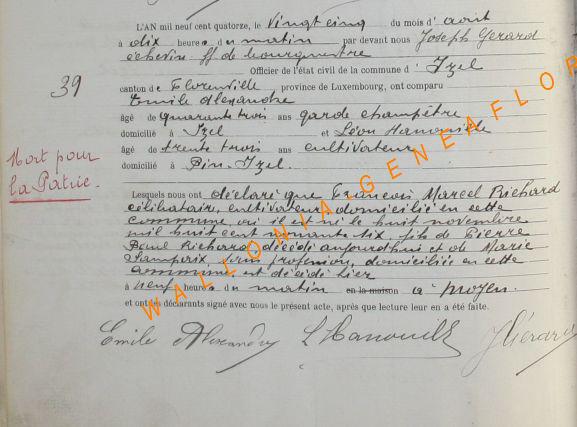 L'AN mil neuf cent quatorze, le Vingt cinq du mois d' août
à dix heures du matin par devant nous Joseph Gerard
échevin ff de bourgmestre
Officier de l'état civil de la commune d' Izel
39
canton de Florenville province de Luxembourg, ont comparu
Emile Alexandre
âgé de quarante trois ans garde champêtre
domicilié à Izel et Léon Hanouille
Mort pour
la Patrie.
âgé de trente trois ans cultivateur
domicilié à Pin-Izel.
Lesquels nous ont déclaré que François Marcel Richard
célibataire, cultivateur domicilié en cette
commune où il est né le huit novembre
mil huit cent nonante six fils de Pierre
Paul Richard décédé aujourdhui et de Marie
sans profession, domiciliée en cette
commune est décédé hier
à neuf heures du matin en la maison a
et ont les déclarants signé avec nous le présent acte, après que lecture leur en a été faite.
Emile Alexandre L Hanouille J Gérard
WALLONIA GENEAFLOR